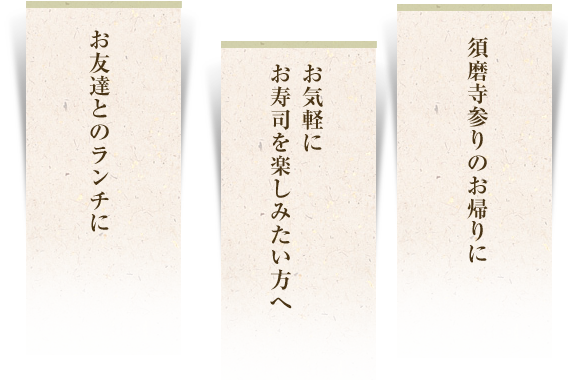 須磨寺参りのお帰りに
お気軽に
お寿司を楽しみたい方へ
お友達とのランチに